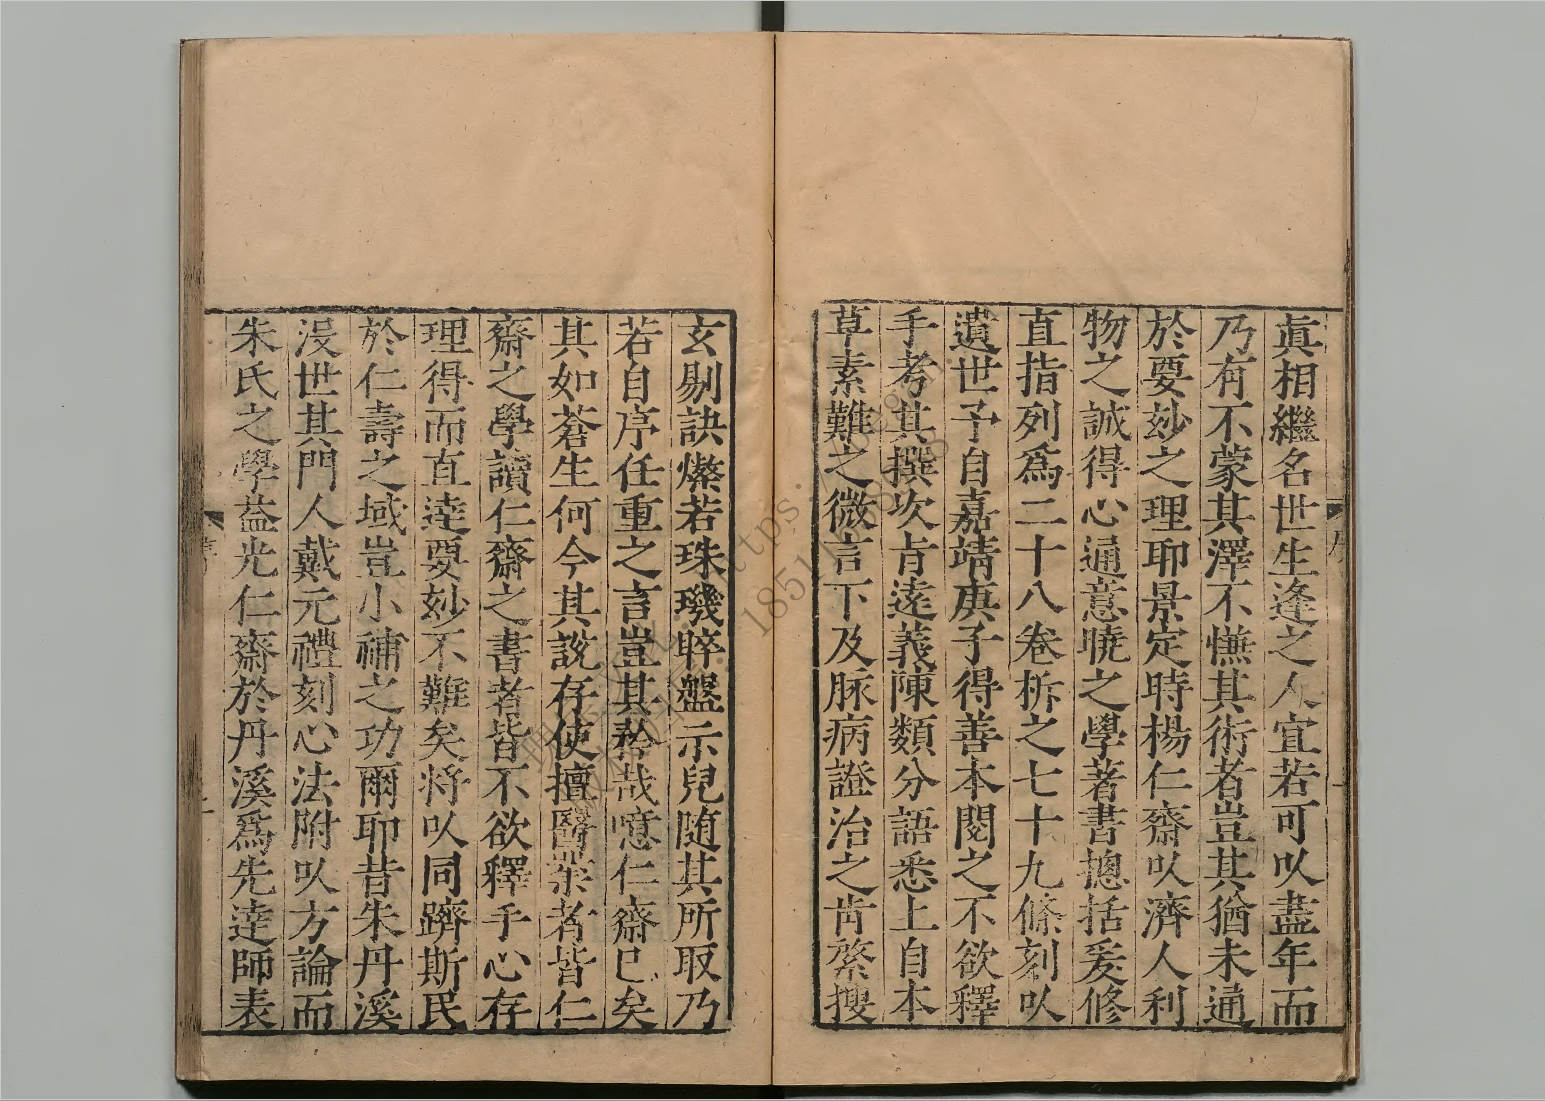 眞相繼名世生逢之人宜若可㕥盡年而
乃有不蒙其澤不憮其術者豈其猶未通
於要妙之理耶景定時楊仁齋㕥濟人利
物之誠得心通意曉之學著書摠括爰修
直指列爲二十八卷柝之七十九條刻㕥
遺世予自嘉靖庚子得善本閱之不欲釋
手考其撰次占逵義陳類分語悉上自本
草素難之微言下及脉病證治之肯綮搜
玄剔訣燦若珠璣晬盤示兒随其所取乃
若自序任重之言豈其夸哉噫仁齋已矣
其如蒼生何今其說存使擅醫業者皆仁
齋之學讀仁齋之書者皆不欲釋手心存
理得而直逹要妙不難矣将㕥同躋斯民
於仁壽之域豈小補之功爾耶昔朱丹溪
沒世其門人戴元禮刻心法附㕥方論而
朱氏之學益光仁齋於丹溪爲先逹師表